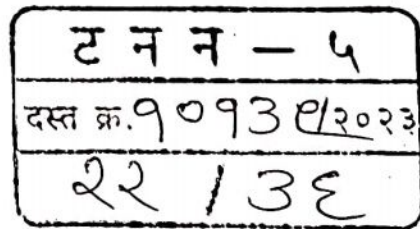 ट न न – ५
दस्त क्र. १०१३९/२०२३
२२ / ३६